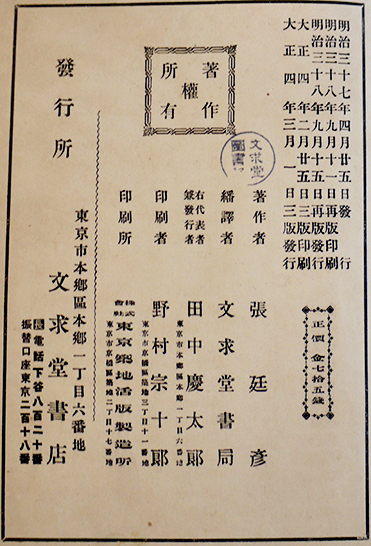 明治三十七年四月廿五日發行
明治三十八年九月十一日再版印刷
明治三十八年九月十五日再版發行
大正四年二月廿五日三版印刷
大正四年三月一日三版發行
正價 金七拾五錢
著作權所有
文求堂
著作者 張廷彥
繙譯者 文求堂書局
東京市本鄉區本鄉一丁目六番地
右代表者兼發行者 田中慶太郎
東京市京橋區築地三丁目十一番地
印刷者 野村宗十郎
東京市京橋區築地二丁目十七番地
印刷所 株式會社 東京築地活版製造所
東京市本鄉區本鄉一丁目六番地
發行所 文求堂書店
電話下谷八百二十番
振替口座東京二百十八番